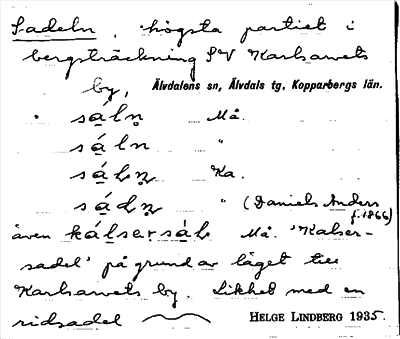 Sadeln, högsta partiet i
bergsträckning SV Karlsarvets
by, Älvdalens sn, Älvdals tg, Kopparbergs län.
sạ́lṇ Må.
sạ́ln "
Ka.
" (Daniels Anders
f. 1866)
även kạ́lsersạ́L Må. 'Kalser-
sadel' på grund av läget till
Karlsarvets by. Likhet med en
ridsadel HELGE LINDBERG 1935.